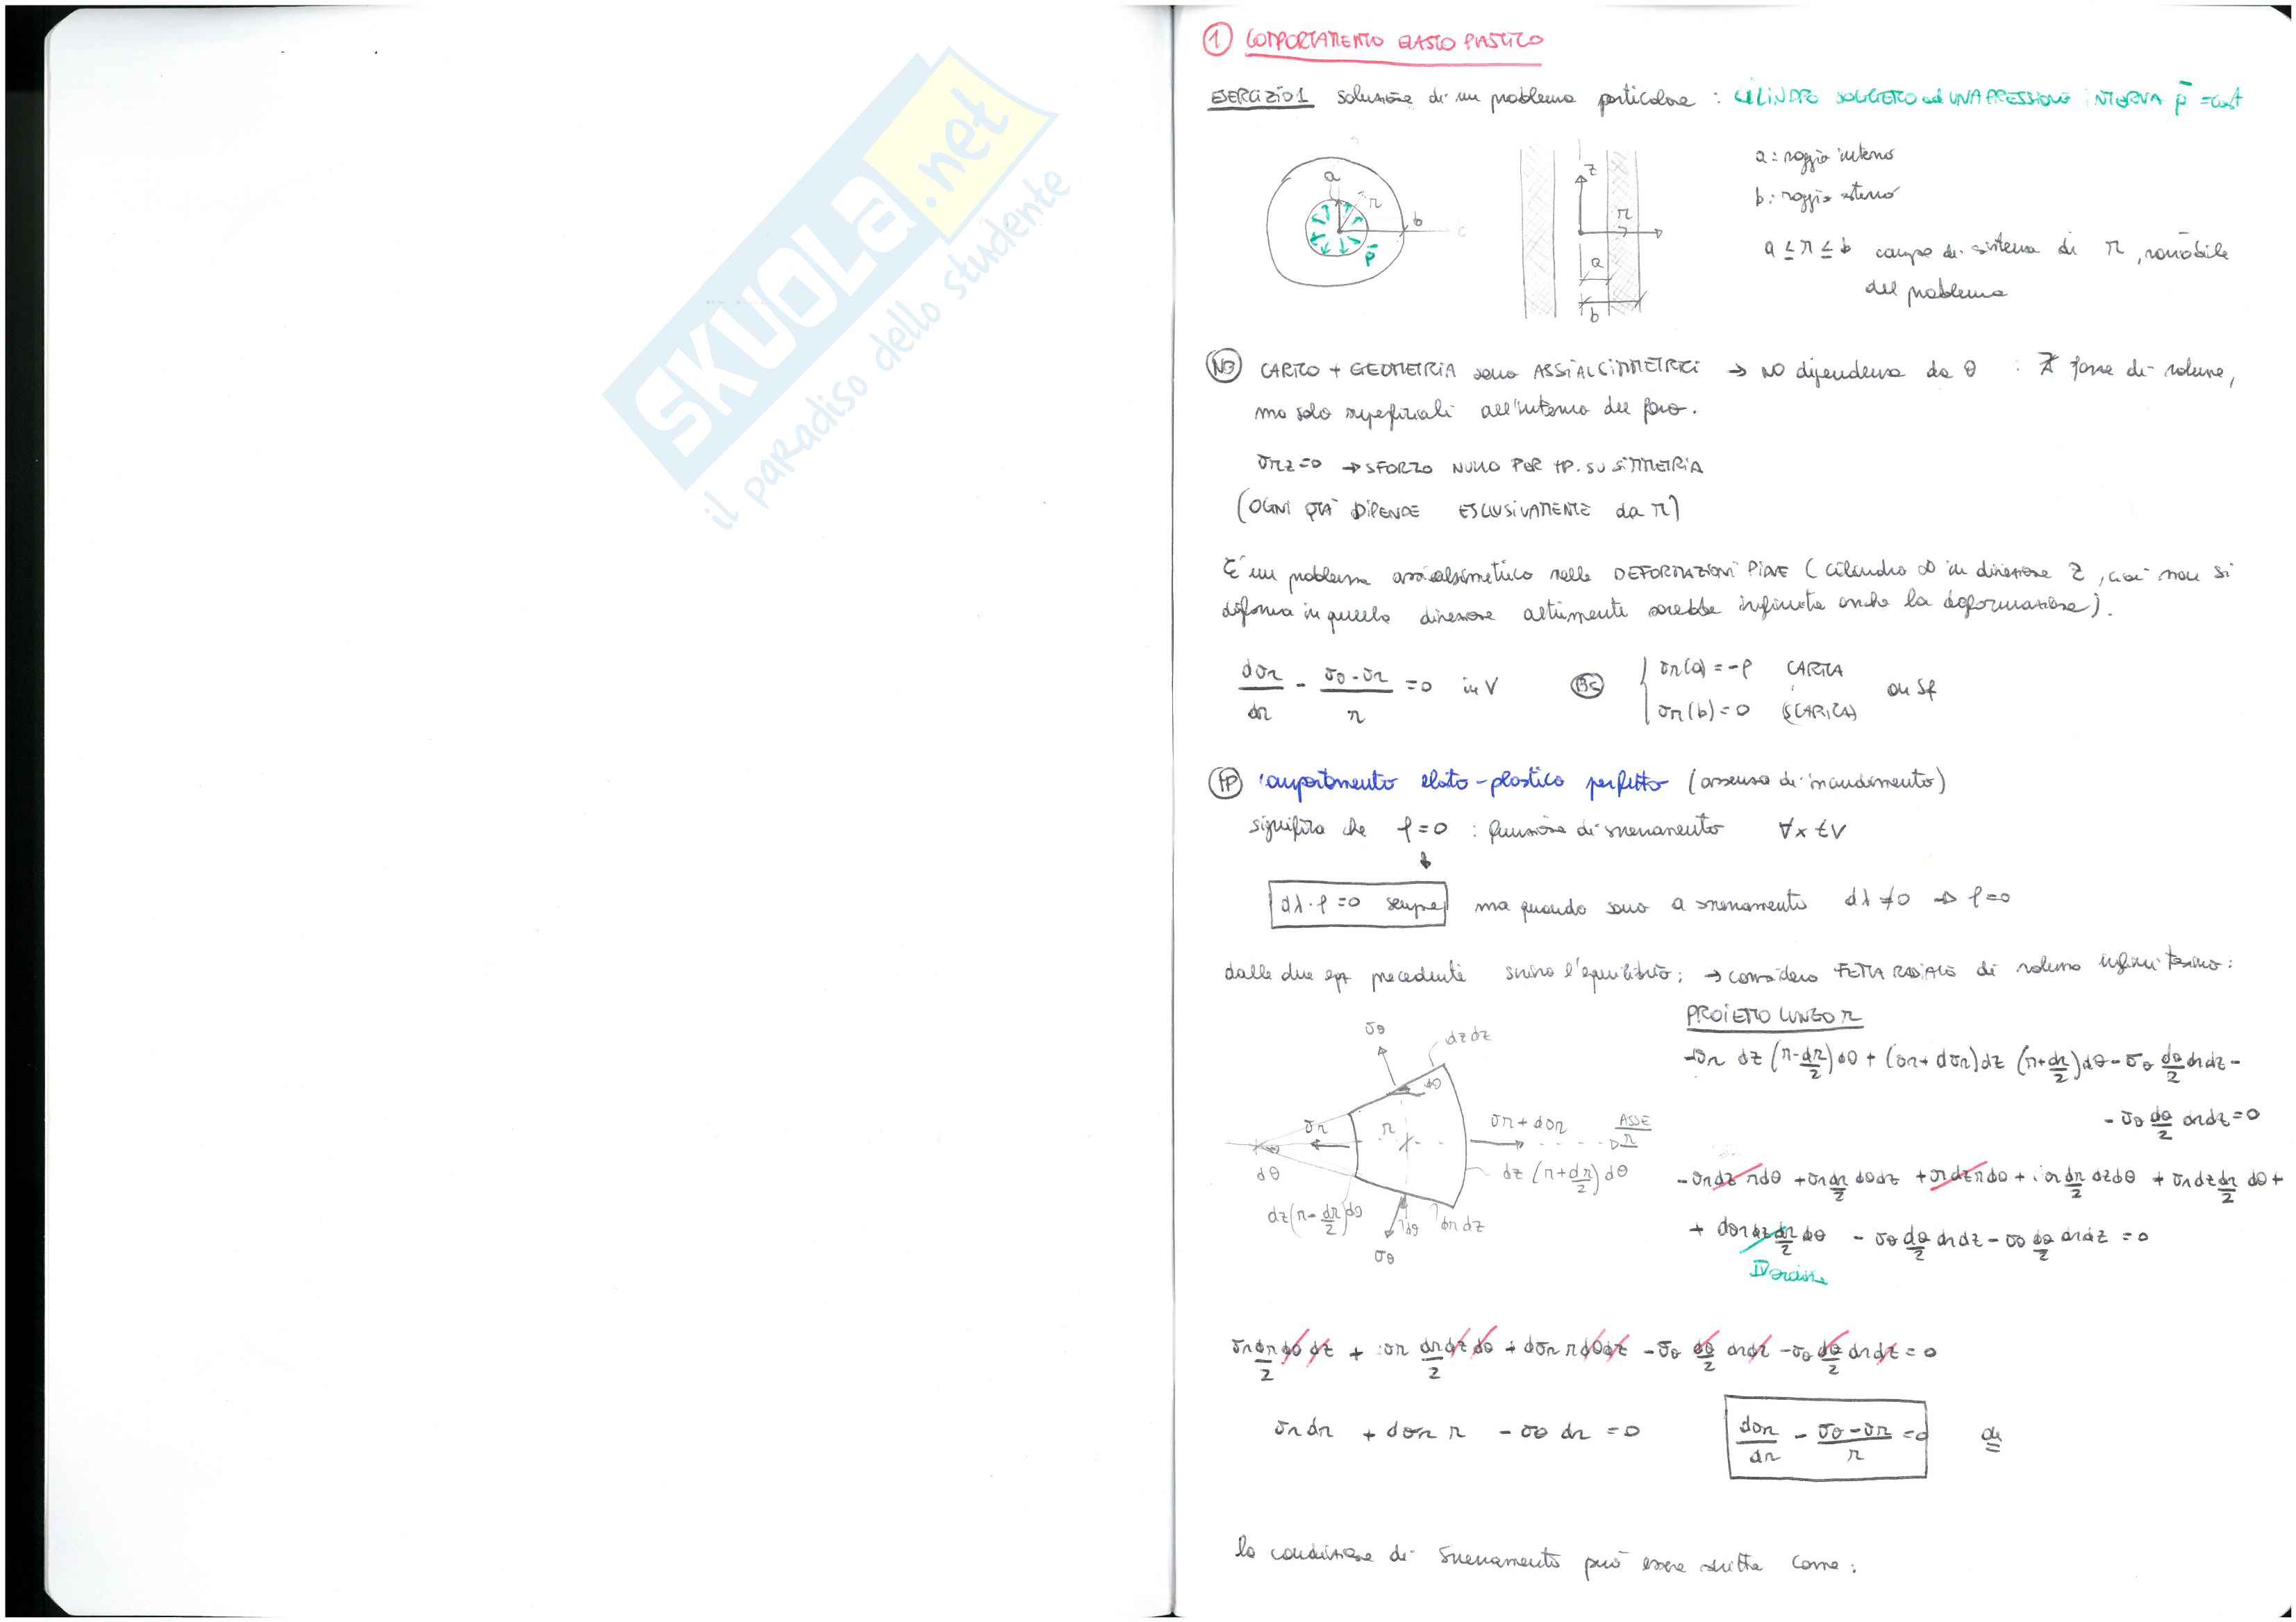 SKUOLA.net
il paradiso dello studente
① COMPORTAMENTO ELASTO PLASTICO
ESERCIZIO 1 soluzione di un problema particolare : CILINDRO SOGGETTO ad UNA PRESSIONE INTERNA p̄ = cost
a
r
b
c
p̄
z
r
a
b
a : raggio interno
b : raggio esterno
a ≤ r ≤ b campo di esistenza di r, variabile
del problema
NB CARICO + GEOMETRIA sono ASSIALSIMMETRICI → NO dipendenza da θ : ∄ forze di volume,
ma solo superficiali all'interno del foro.
σrz = 0 → SFORZO NULLO PER HP. SU SIMMETRIA
(OGNI QTÀ DIPENDE ESCLUSIVAMENTE da r)
È un problema assialsimmetrico nelle DEFORMAZIONI PIANE (cilindro ∞ in direzione z, cioè non si
deforma in quella direzione altrimenti sarebbe infinita anche la deformazione).
dσr/dr - (σθ - σr)/r = 0 in V BC { σr(a) = -p CARICA
σr(b) = 0 (SCARICA) on Sf
HP comportamento elasto-plastico perfetto (assenza di incrudimento)
significa che f = 0 : funzione di snervamento ∀x ∈ V
↓
dλ · f = 0 sempre ma quando sono a snervamento dλ ≠ 0 ⇒ f = 0
dalle due eq. precedenti scrivo l'equilibrio; → considero FETTA RADIALE di volume infinitesimo:
PROIETTO LUNGO r
σθ
dzdz
dθ
σr
r
σr + dσr
ASSE r
dθ
dz (r + dr/2) dθ
dz (r - dr/2) dθ
dθ
dr dz
σθ
-σr dz (r - dr/2) dθ + (σr + dσr) dz (r + dr/2) dθ - σθ dθ/2 dr dz -
- σθ dθ/2 dr dz = 0
- σr dz r dθ + σr dr/2 dθ dz + σr dz r dθ + σr dr/2 dz dθ + σr dz dr/2 dθ +
+ dσr dz dr/2 dθ - σθ dθ/2 dr dz - σθ dθ/2 dr dz = 0
IV ordine
σr dr/2 dθ dz + σr dr/2 dz dθ + dσr r dθ dz - σθ dθ/2 dr dz - σθ dθ/2 dr dz = 0
σr dr + dσr r - σθ dr = 0 dσr/dr - (σθ - σr)/r = 0
la condizione di snervamento può essere scritta come :